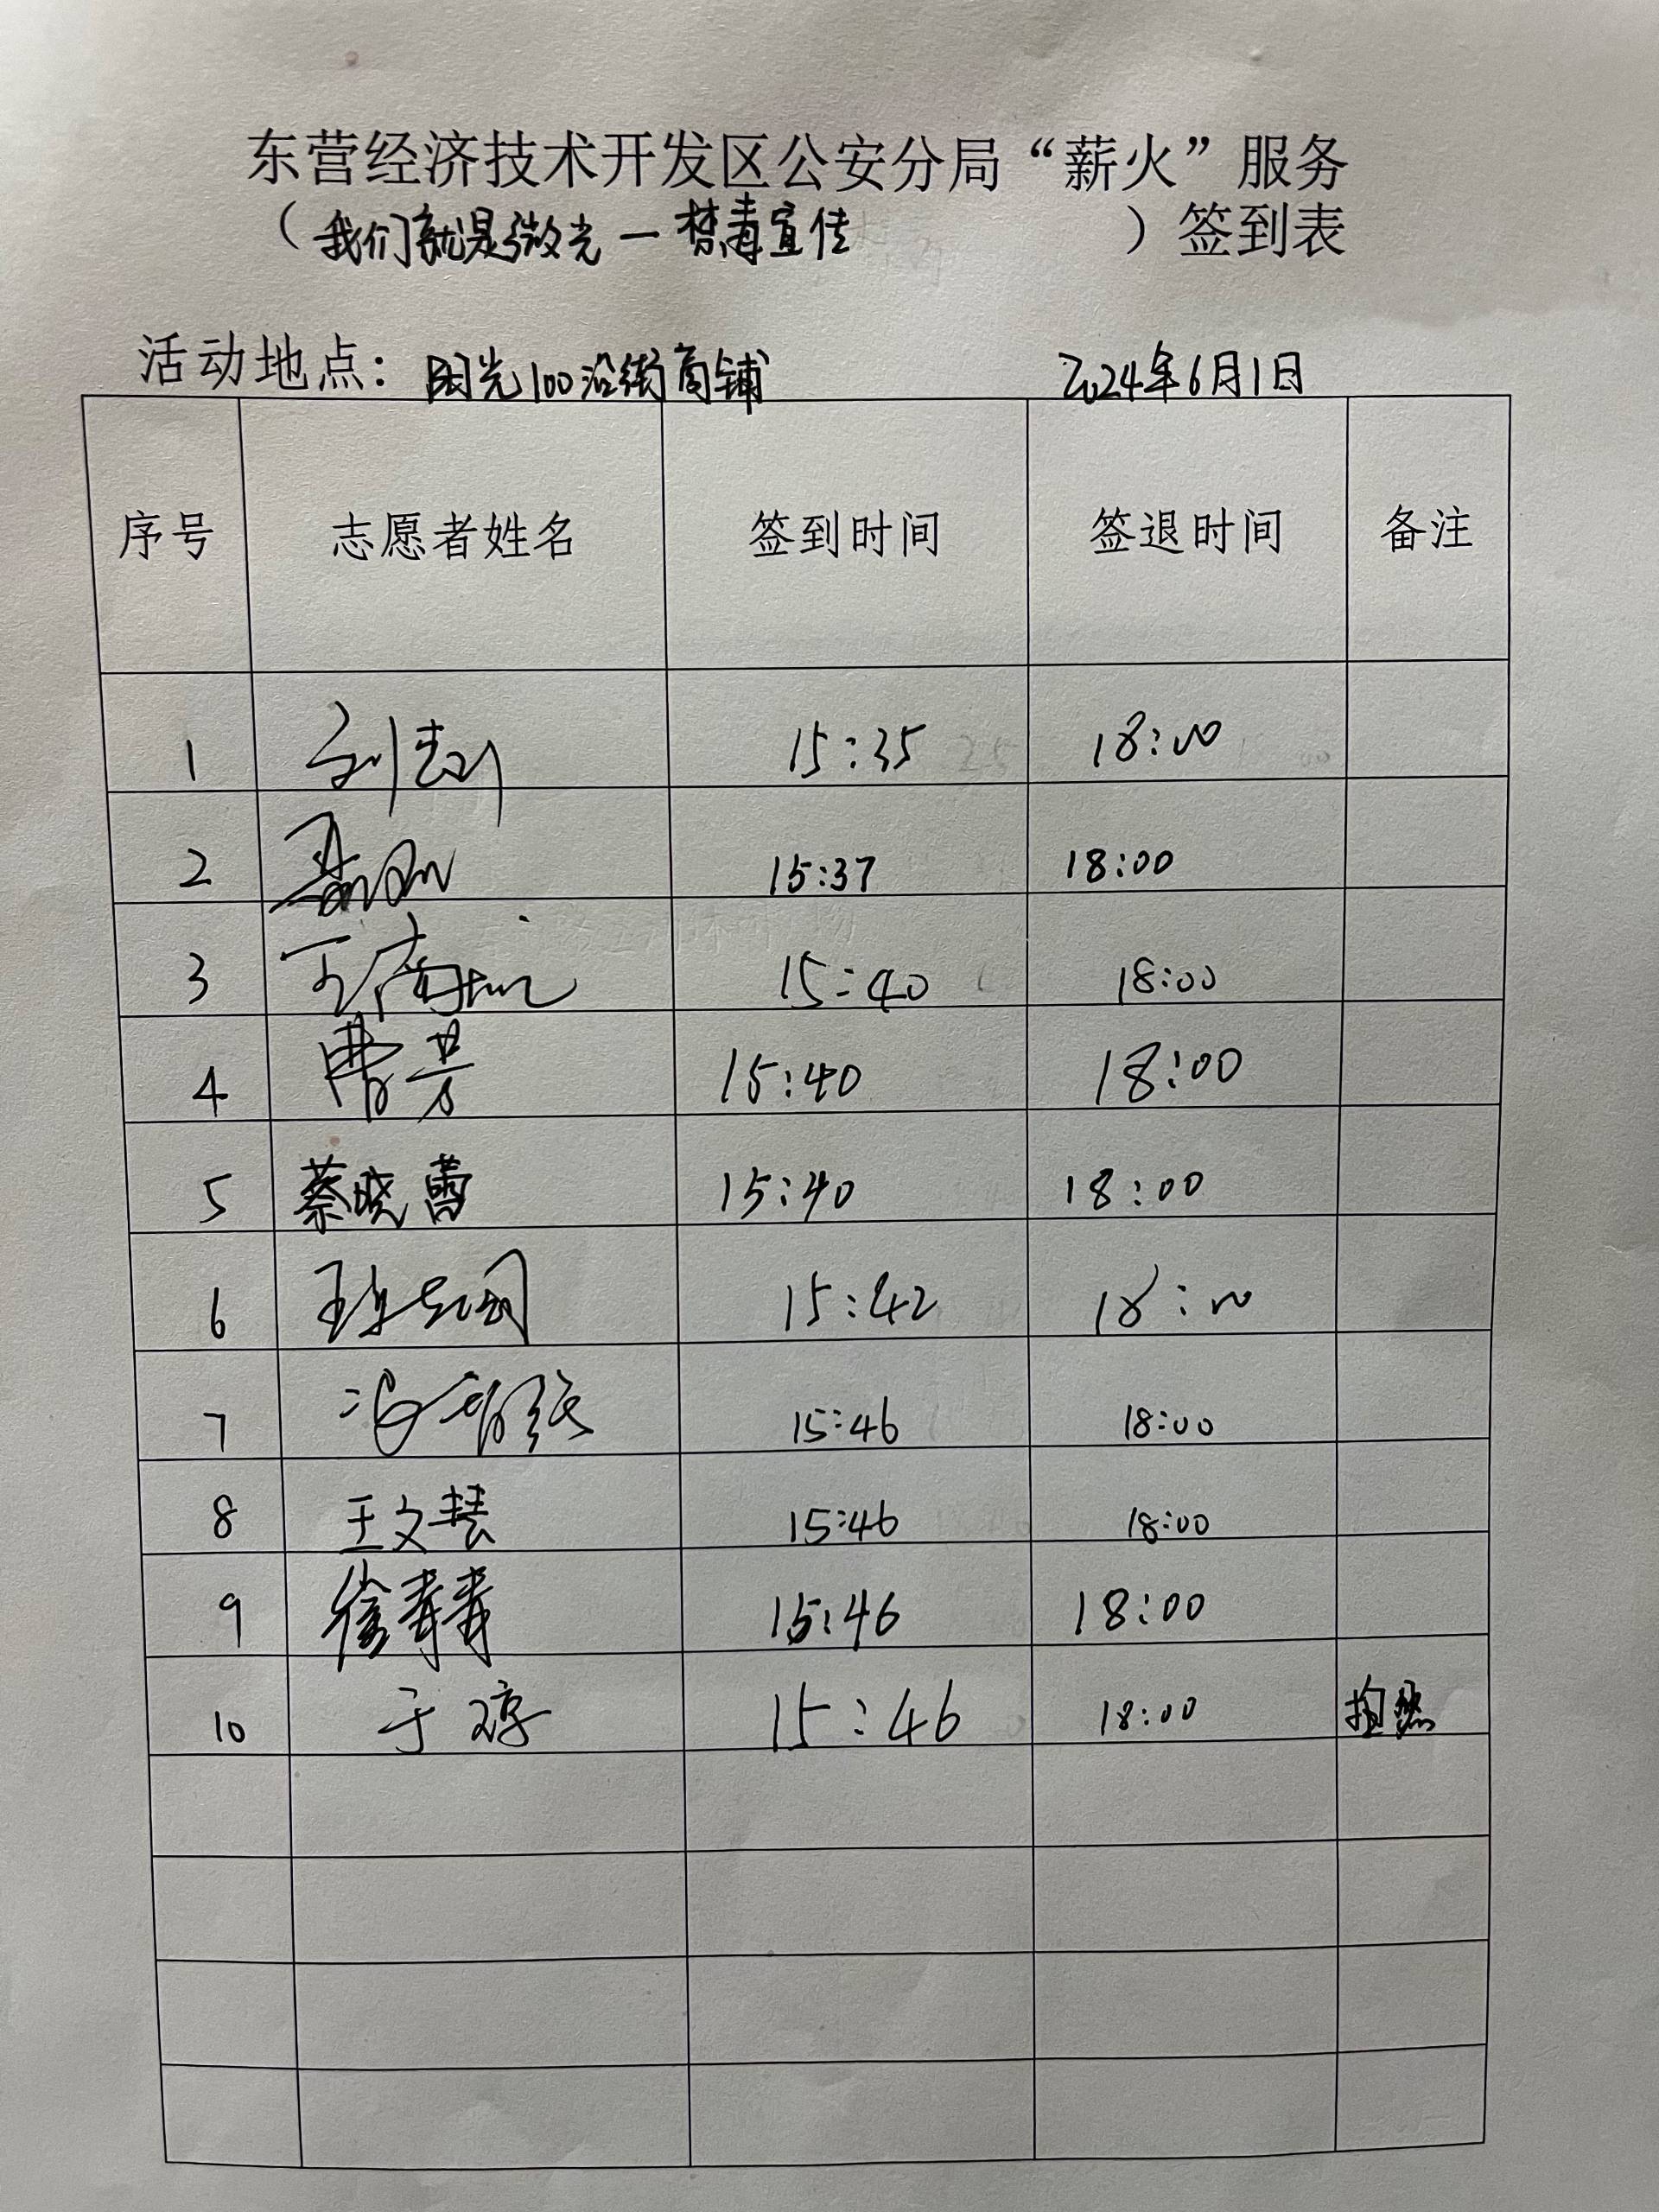 东营经济技术开发区公安分局“薪火”服务
（我们就是微光—禁毒宣传）签到表
活动地点：阳光100沿街商铺 2024年6月1日
序号 志愿者姓名 签到时间 签退时间 备注
1 15:35 18:00
2 15:37 18:00
3 15:40 18:00
4 曹芳 15:40 18:00
5 蔡晓蕾 15:40 18:00
6 15:42 18:00
7 15:46 18:00
8 王文慧 15:46 18:00
9 徐青青 15:46 18:00
10 于 15:46 18:00 拍照